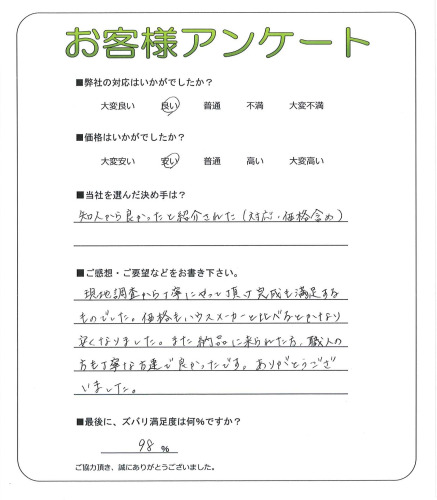 お客様アンケート
■弊社の対応はいかがでしたか？
大変良い 良い 普通 不満 大変不満
■価格はいかがでしたか？
大変安い 安い 普通 高い 大変高い
■当社を選んだ決め手は？
知人から良かったと紹介された（対応・価格含め）
■ご感想・ご要望などをお書き下さい。
現地調査から丁寧にやって頂き完成も満足する
ものでした。価格もハウスメーカーと比べるとかなり
安くなりました。また納品に来られた方、職人の
方も丁寧な方達で良かったです。ありがとうござ
いました。
■最後に、ズバリ満足度は何％ですか？
98 %
ご協力頂き、誠にありがとうございました。